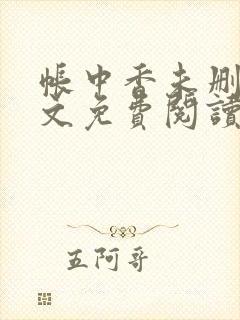 帳中香未刪
文免費閱讀
五阿哥